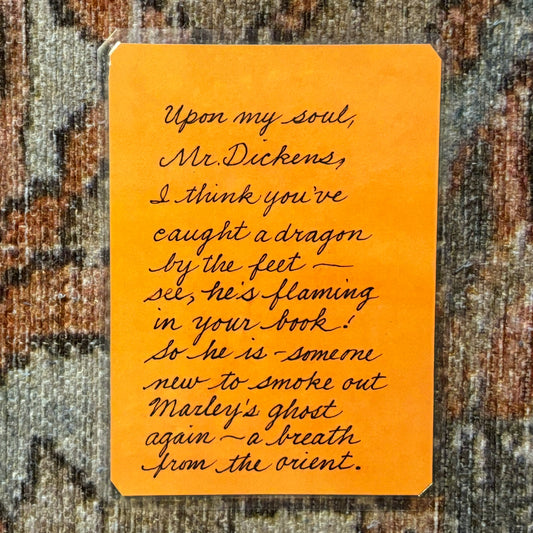 Upon my soul,
Mr. Dickens,
I think you've
caught a dragon
by the feet —
see, he's flaming
in your book!
So he is - someone
new to smoke out
Marley's ghost
again ~ a breath
from the orient.